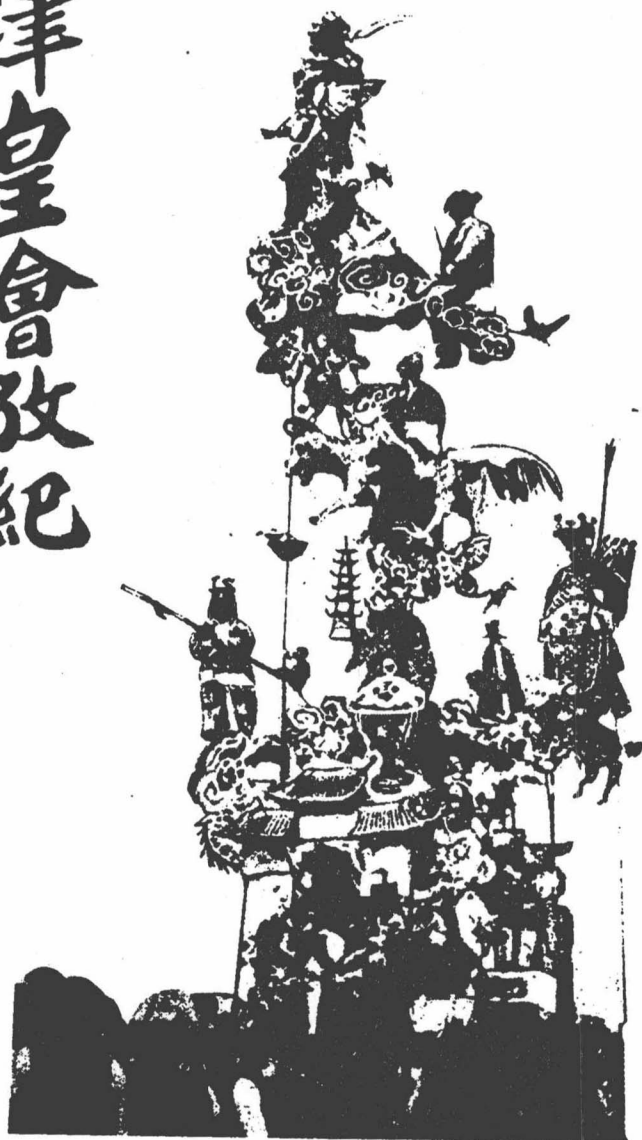 津皇會攷紀